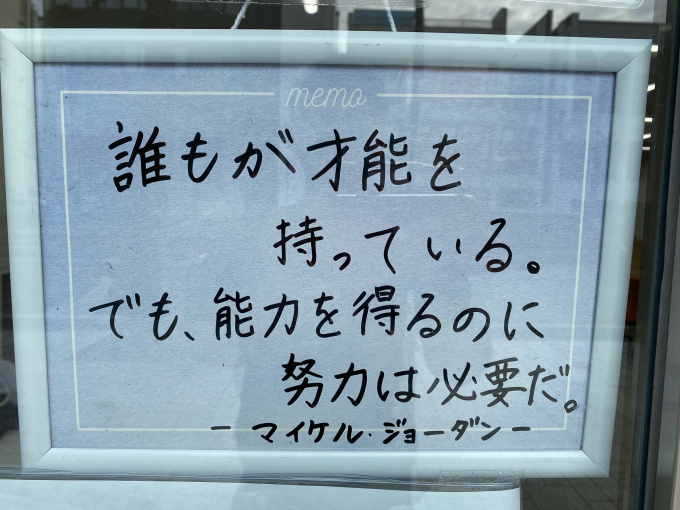 memo
誰もが才能を
持っている。
でも、能力を得るのに
努力は必要だ。
ー マイケル・ジョーダン ー